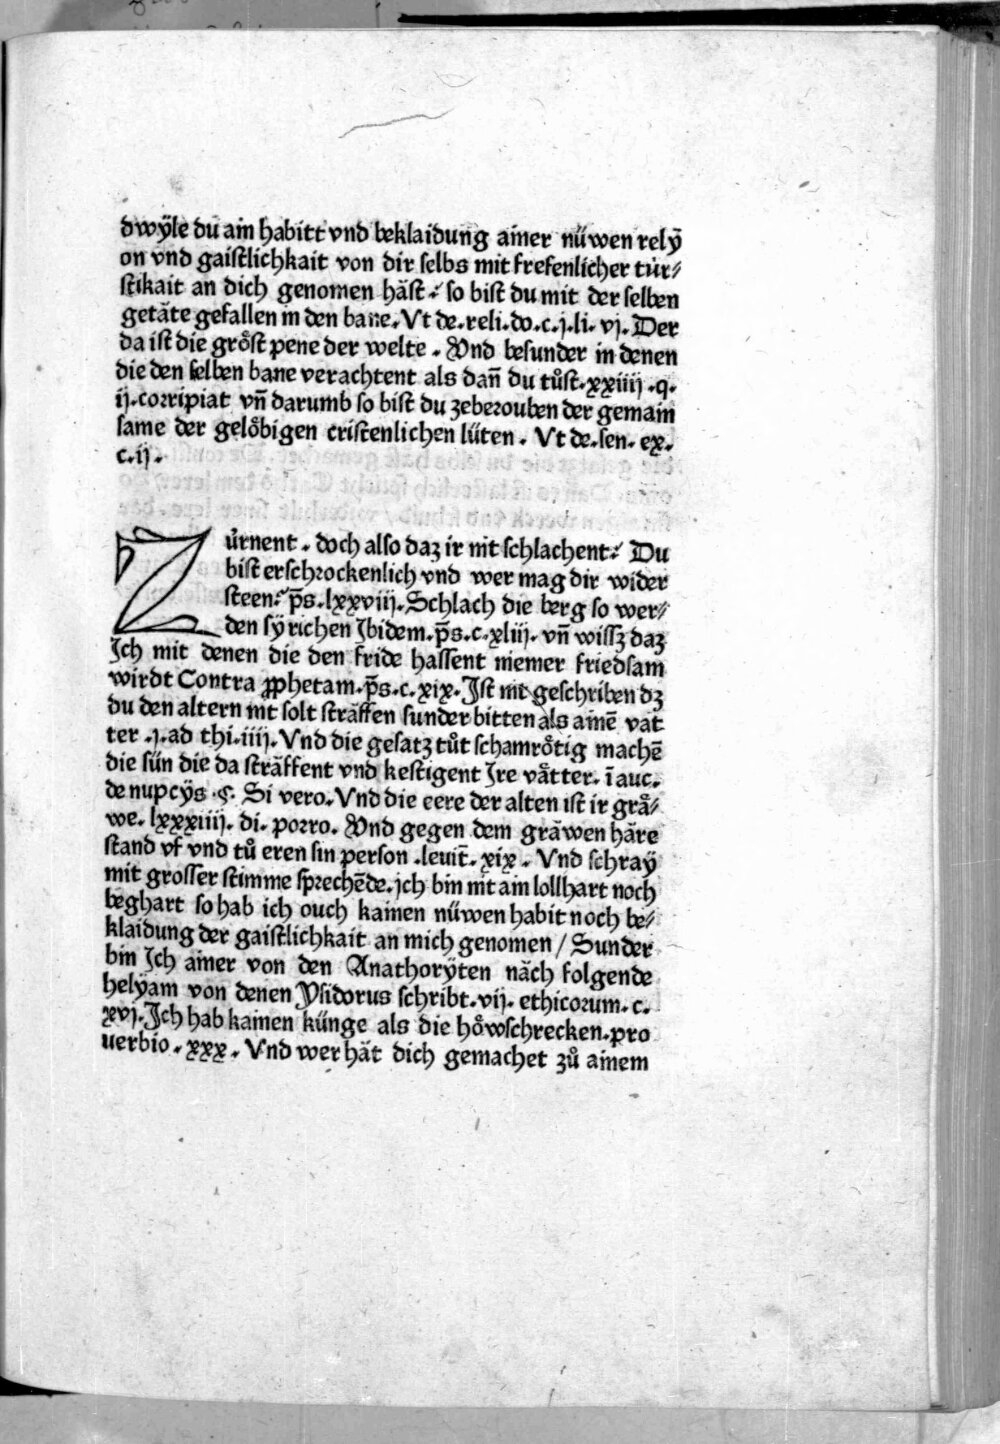 dwÿle du ain habitt vnd beklaidung ainer nüwen relÿ
on vnd gaistlichkait von dir selbs mit frefenlicher tür⸗
stikait an dich genomen häst⸵ so bist du mit der selben
getäte gefallen in den bane. Vt de. reli. do. c. j. li. vj. Der
da ist die gröst pene der welte. Vnd besunder in denen
die den selben bane verachtent als dañ du tůst. xxiiij. q.
ij. corripiat vñ darumb so bist du zeberouben der gemain
same der gelöbigen cristenlichen lüten. Vt de. sen. ex.
c. ij.
Zürnent. doch also daz ir nit schlachent⸵ Du
bist erschrockenlich vnd wer mag dir wider
steen⸵ p̄s. lxxviij. Schlach die berg so wer⸗
den sÿ richen Jbidem. p̄s. c. xliij. vñ wissz daz
Jch mit denen die den fride hassent niemer friedsam
wirdt Contra ꝓphetam. p̄s. c. xix. Jst nit geschriben dz
du den altern nit solt sträffen sunder bitten als ainē vat
ter. j. ad thi. iiij. Vnd die gesatz tůt schamrötig machē
die sün die da sträffent vnd kestigent Jre vätter. ī auc.
de nupcÿs. ꝯ. Si vero. Vnd die eere der alten ist ir grä⸗
we. lxxxiiij. di. porro. Vnd gegen dem gräwen häre
stand vf vnd tů eren sin person. leuit̄. xix. Vnd schraÿ
mit grosser stimme sprechēde. jch bin nit ain lollhart noch
beghart so hab ich ouch kainen nüwen habit noch be⸗
klaidung der gaistlichkait an mich genomen / Sunder
bin Jch ainer von den Anathorÿten näch folgende
helÿam von denen Ysidorus schribt. vij. ethicorum. c.
xvj. Jch hab kainen künge als die höwschrecken. pro
uerbio. xxx. Vnd wer hät dich gemachet zů ainem